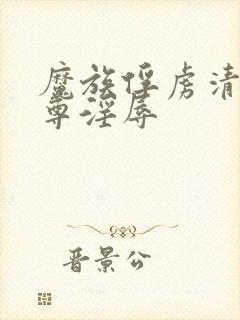 魔族俘虏清
尊淫辱
晋景公